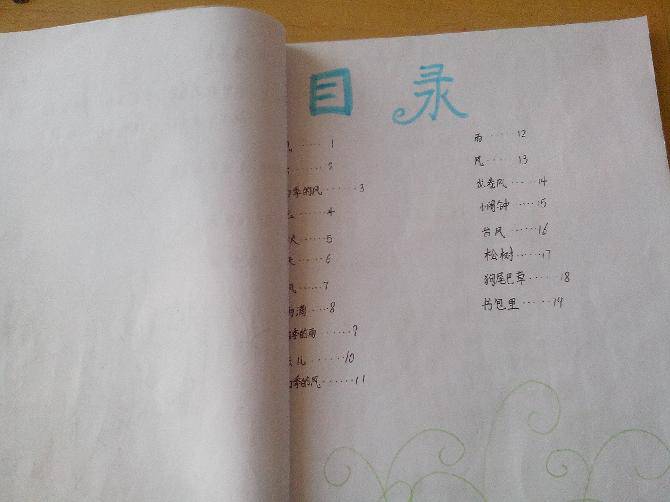 目录
风 ······ 1
······ 2
季的风 ······· 3
······ 4
······ 5
······ 6
风 ······ 7
雨滴 ······ 8
季的雨 ······· 9
云儿 ······· 10
季的风 ······· 11
雨 ······ 12
风 ······ 13
龙卷风 ······ 14
小闹钟 ······ 15
台风 ······ 16
松树 ······ 17
狗尾巴草 ······ 18
书包里 ······· 19